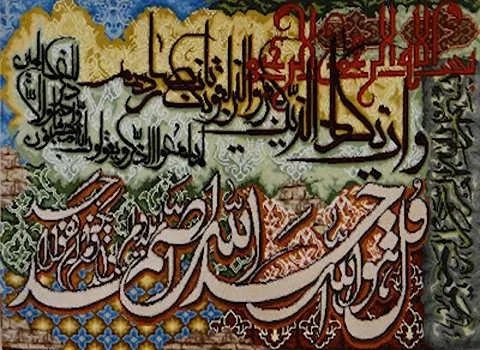 بسم الله الرحمن الرحيم
وإن يكاد الذين كفروا ليزلقونك بأبصارهم
لما سمعوا الذكر ويقولون إنه لمجنون
وما هو إلا ذكر للعالمين
قل هو الله أحد الله الصمد لم يلد ولم يولد ولم يكن له كفوا أحد